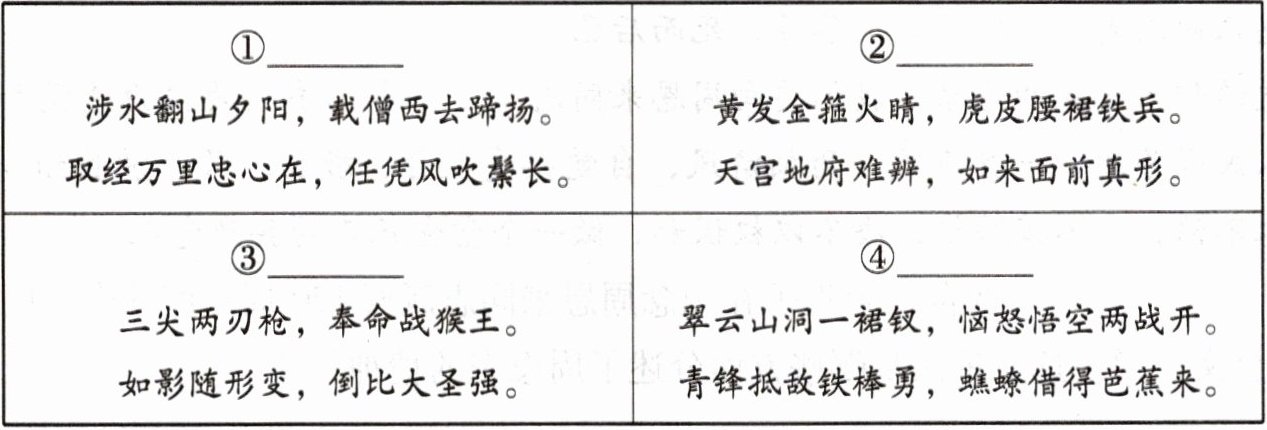 ①________
涉水翻山夕阳，载僧西去蹄扬。
取经万里忠心在，任凭风吹鬃长。
②________
黄发金箍火睛，虎皮腰裙铁兵。
天宫地府难辨，如来面前真形。
③________
三尖两刃枪，奉命战猴王。
如影随形变，倒比大圣强。
④________
翠云山洞一裙钗，恼怒悟空两战开。
青锋抵敌铁棒勇，蟭蟟借得芭蕉来。